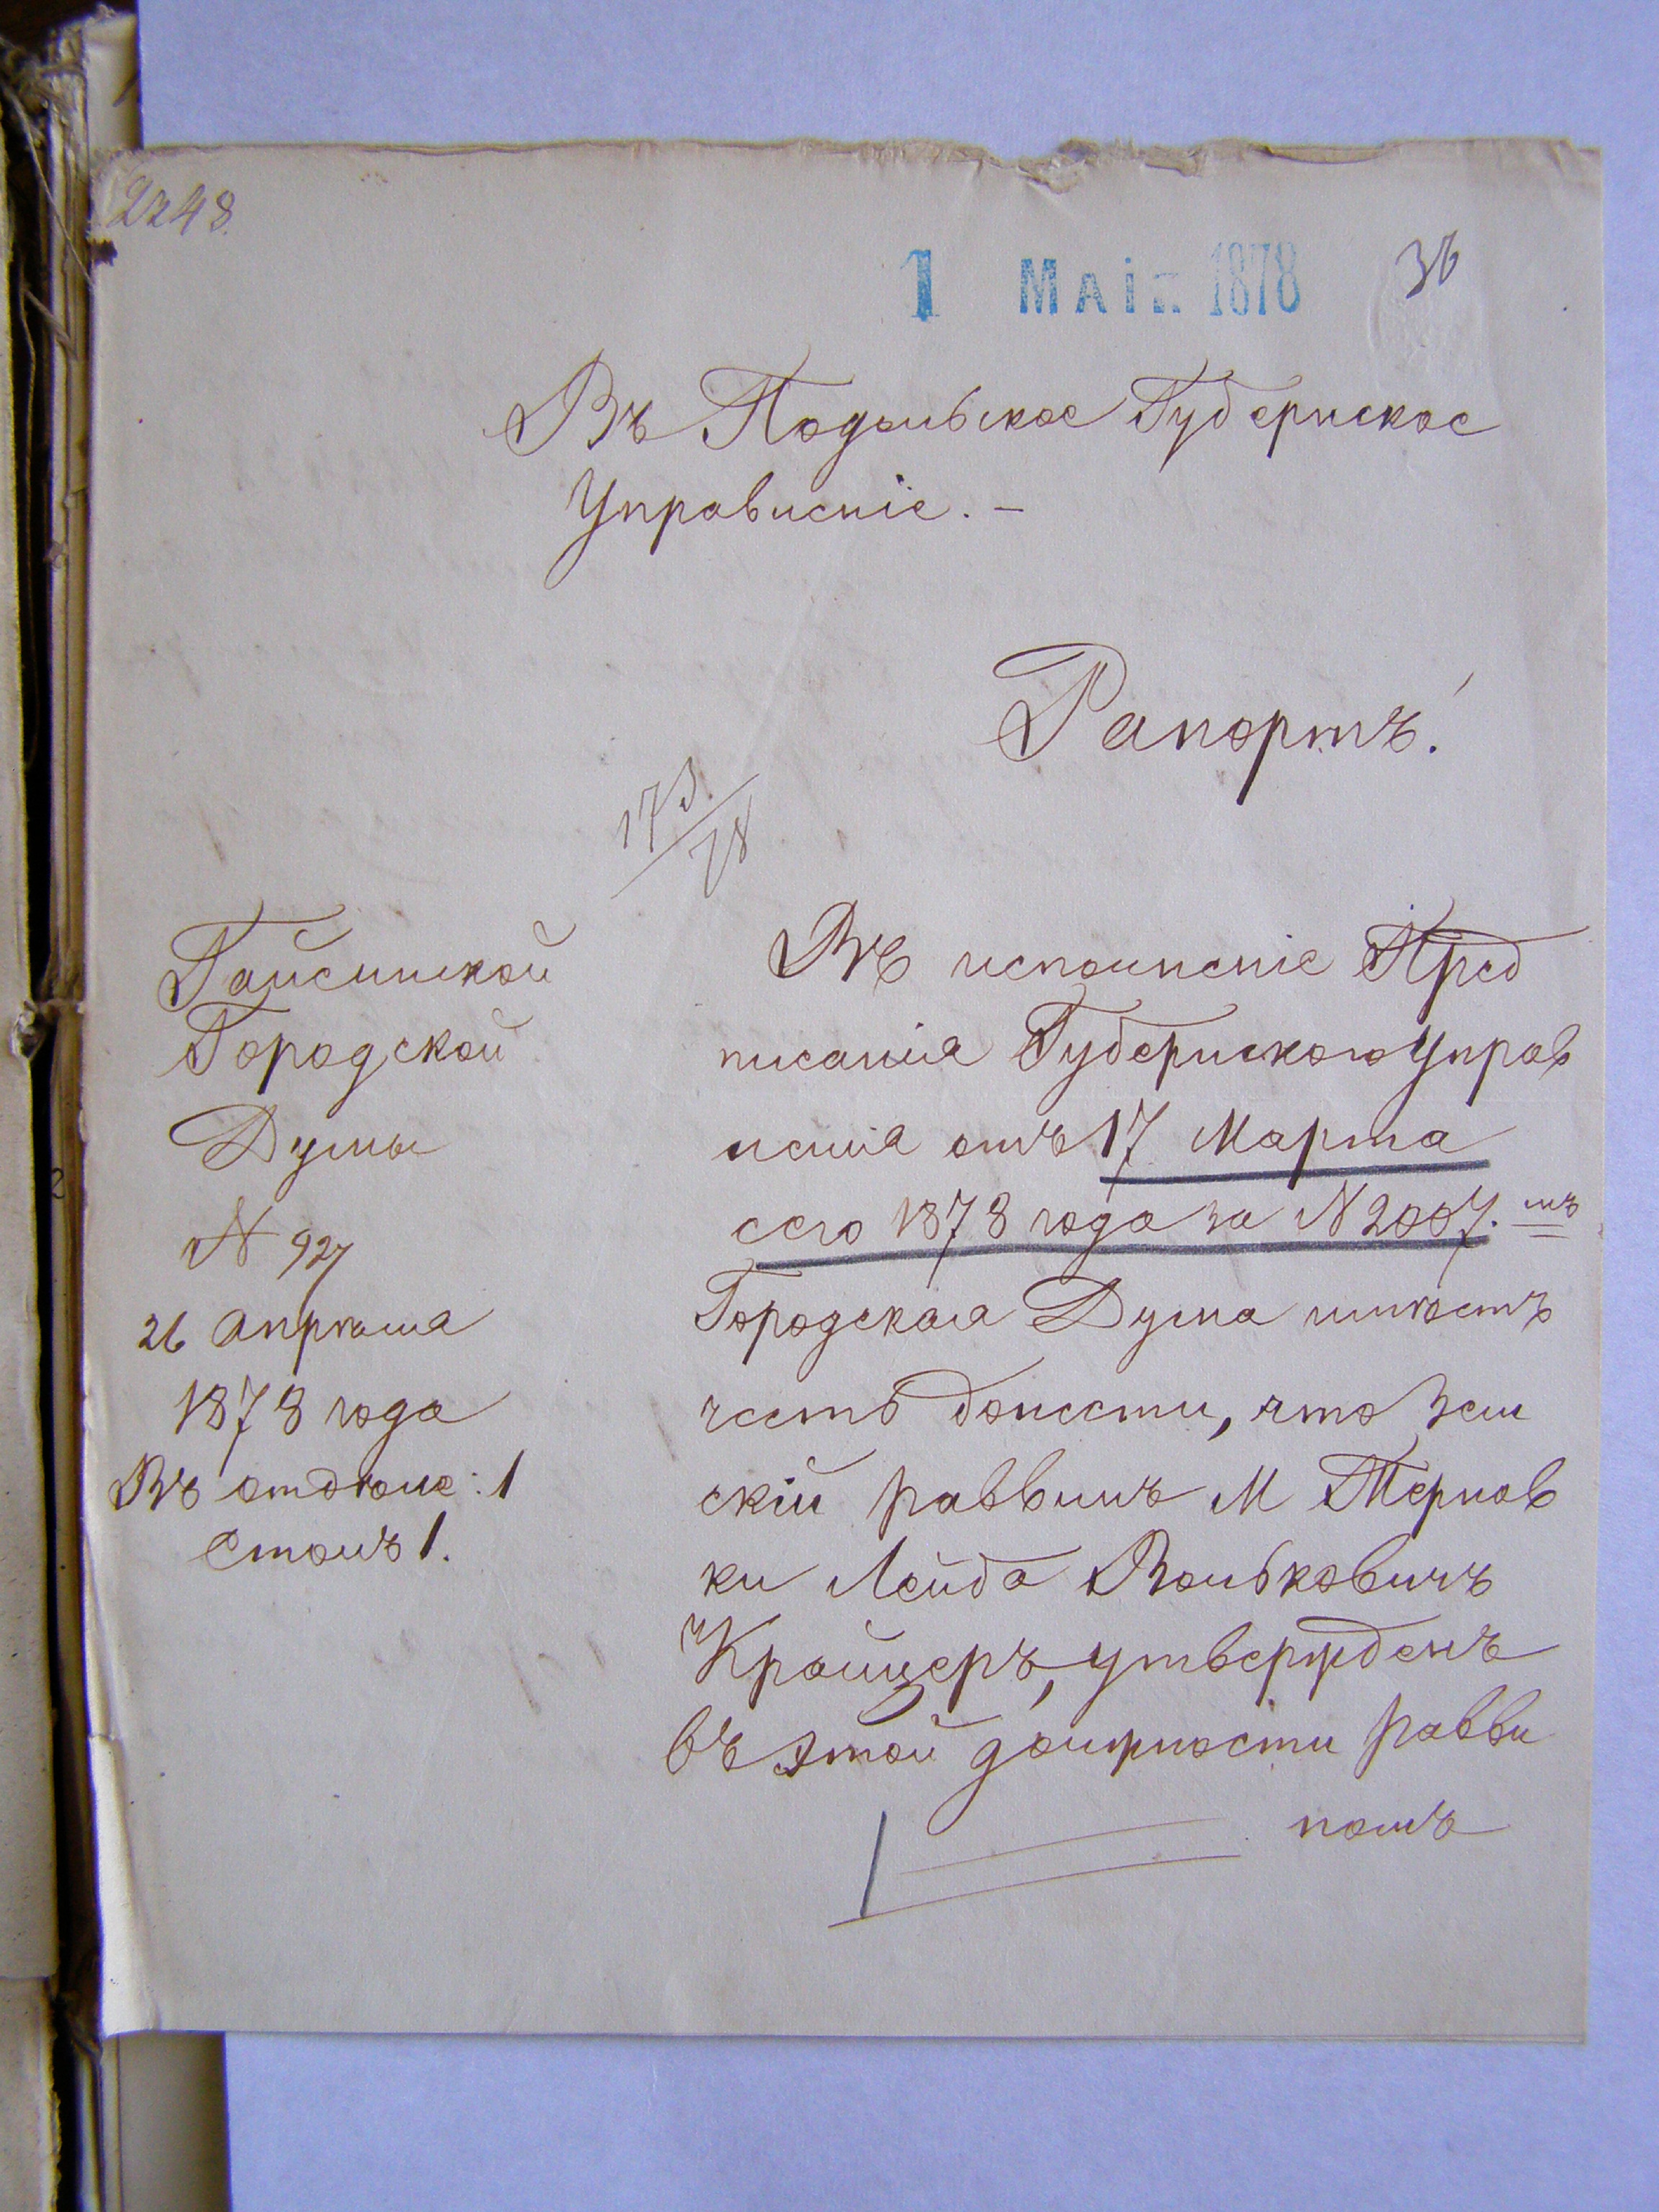 2248
1 Маія 1878
36
Въ Подольское Губернское
Управленіе. –
Рапортъ.
173/78
Гайсинской
Городской
Думы
N 927
26 Апрѣля
1878 года
Въ отдѣле: 1
Столъ 1.
Въ исполненіе Пред
писанія Губернского Управ
ленія отъ 17 Марта
сего 1878 года за N 2007. мъ
Городская Дума имѣетъ
честь донести, что
скій раввинъ М Тернов
ки Лейба Волькович
Крайцеръ, утвержденъ
въ этой должности равви
номъ